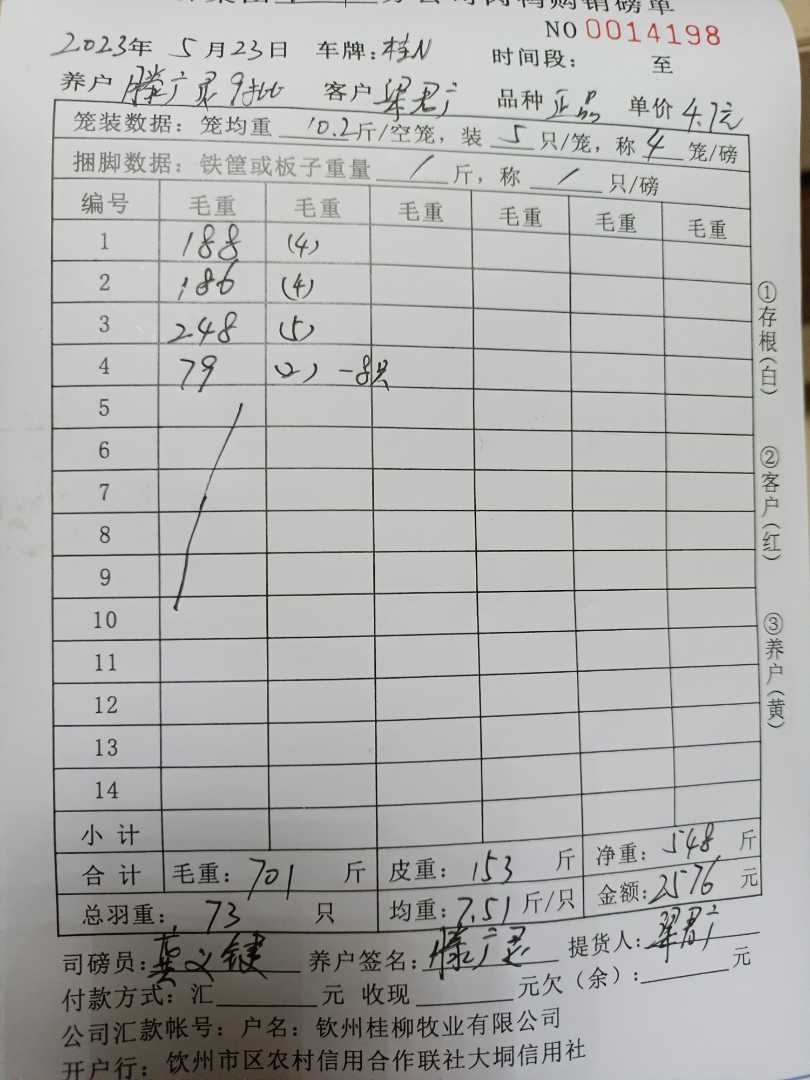 公司肉鸭购销磅单
NO 0014198
2023年 5月23日 车牌:桂N 时间段: 至
养户 滕广灵9批 客户 梁君广 品种 正品 单价 4.7元
笼装数据:笼均重 10.2斤/空笼,装 5 只/笼,称 4 笼/磅
捆脚数据:铁筐或板子重量 / 斤,称 / 只/磅
编号 毛重 毛重 毛重 毛重 毛重 毛重
1 188 (4)
2 186 (4)
3 248 (5)
4 79 (2) -8只
5
6
7
8
9
10
11
12
13
14
小计
合计 毛重: 701 斤 皮重: 153 斤 净重: 548 斤
总羽重: 73 只 均重: 7.51 斤/只 金额: 2576 元
司磅员: 键 养户签名: 滕广灵 提货人: 梁君广
付款方式:汇 元 收现 元欠(余): 元
公司汇款帐号:户名:钦州桂柳牧业有限公司
开户行:钦州市区农村信用合作联社大垌信用社
①存根(白)
②客户(红)
③养户(黄)